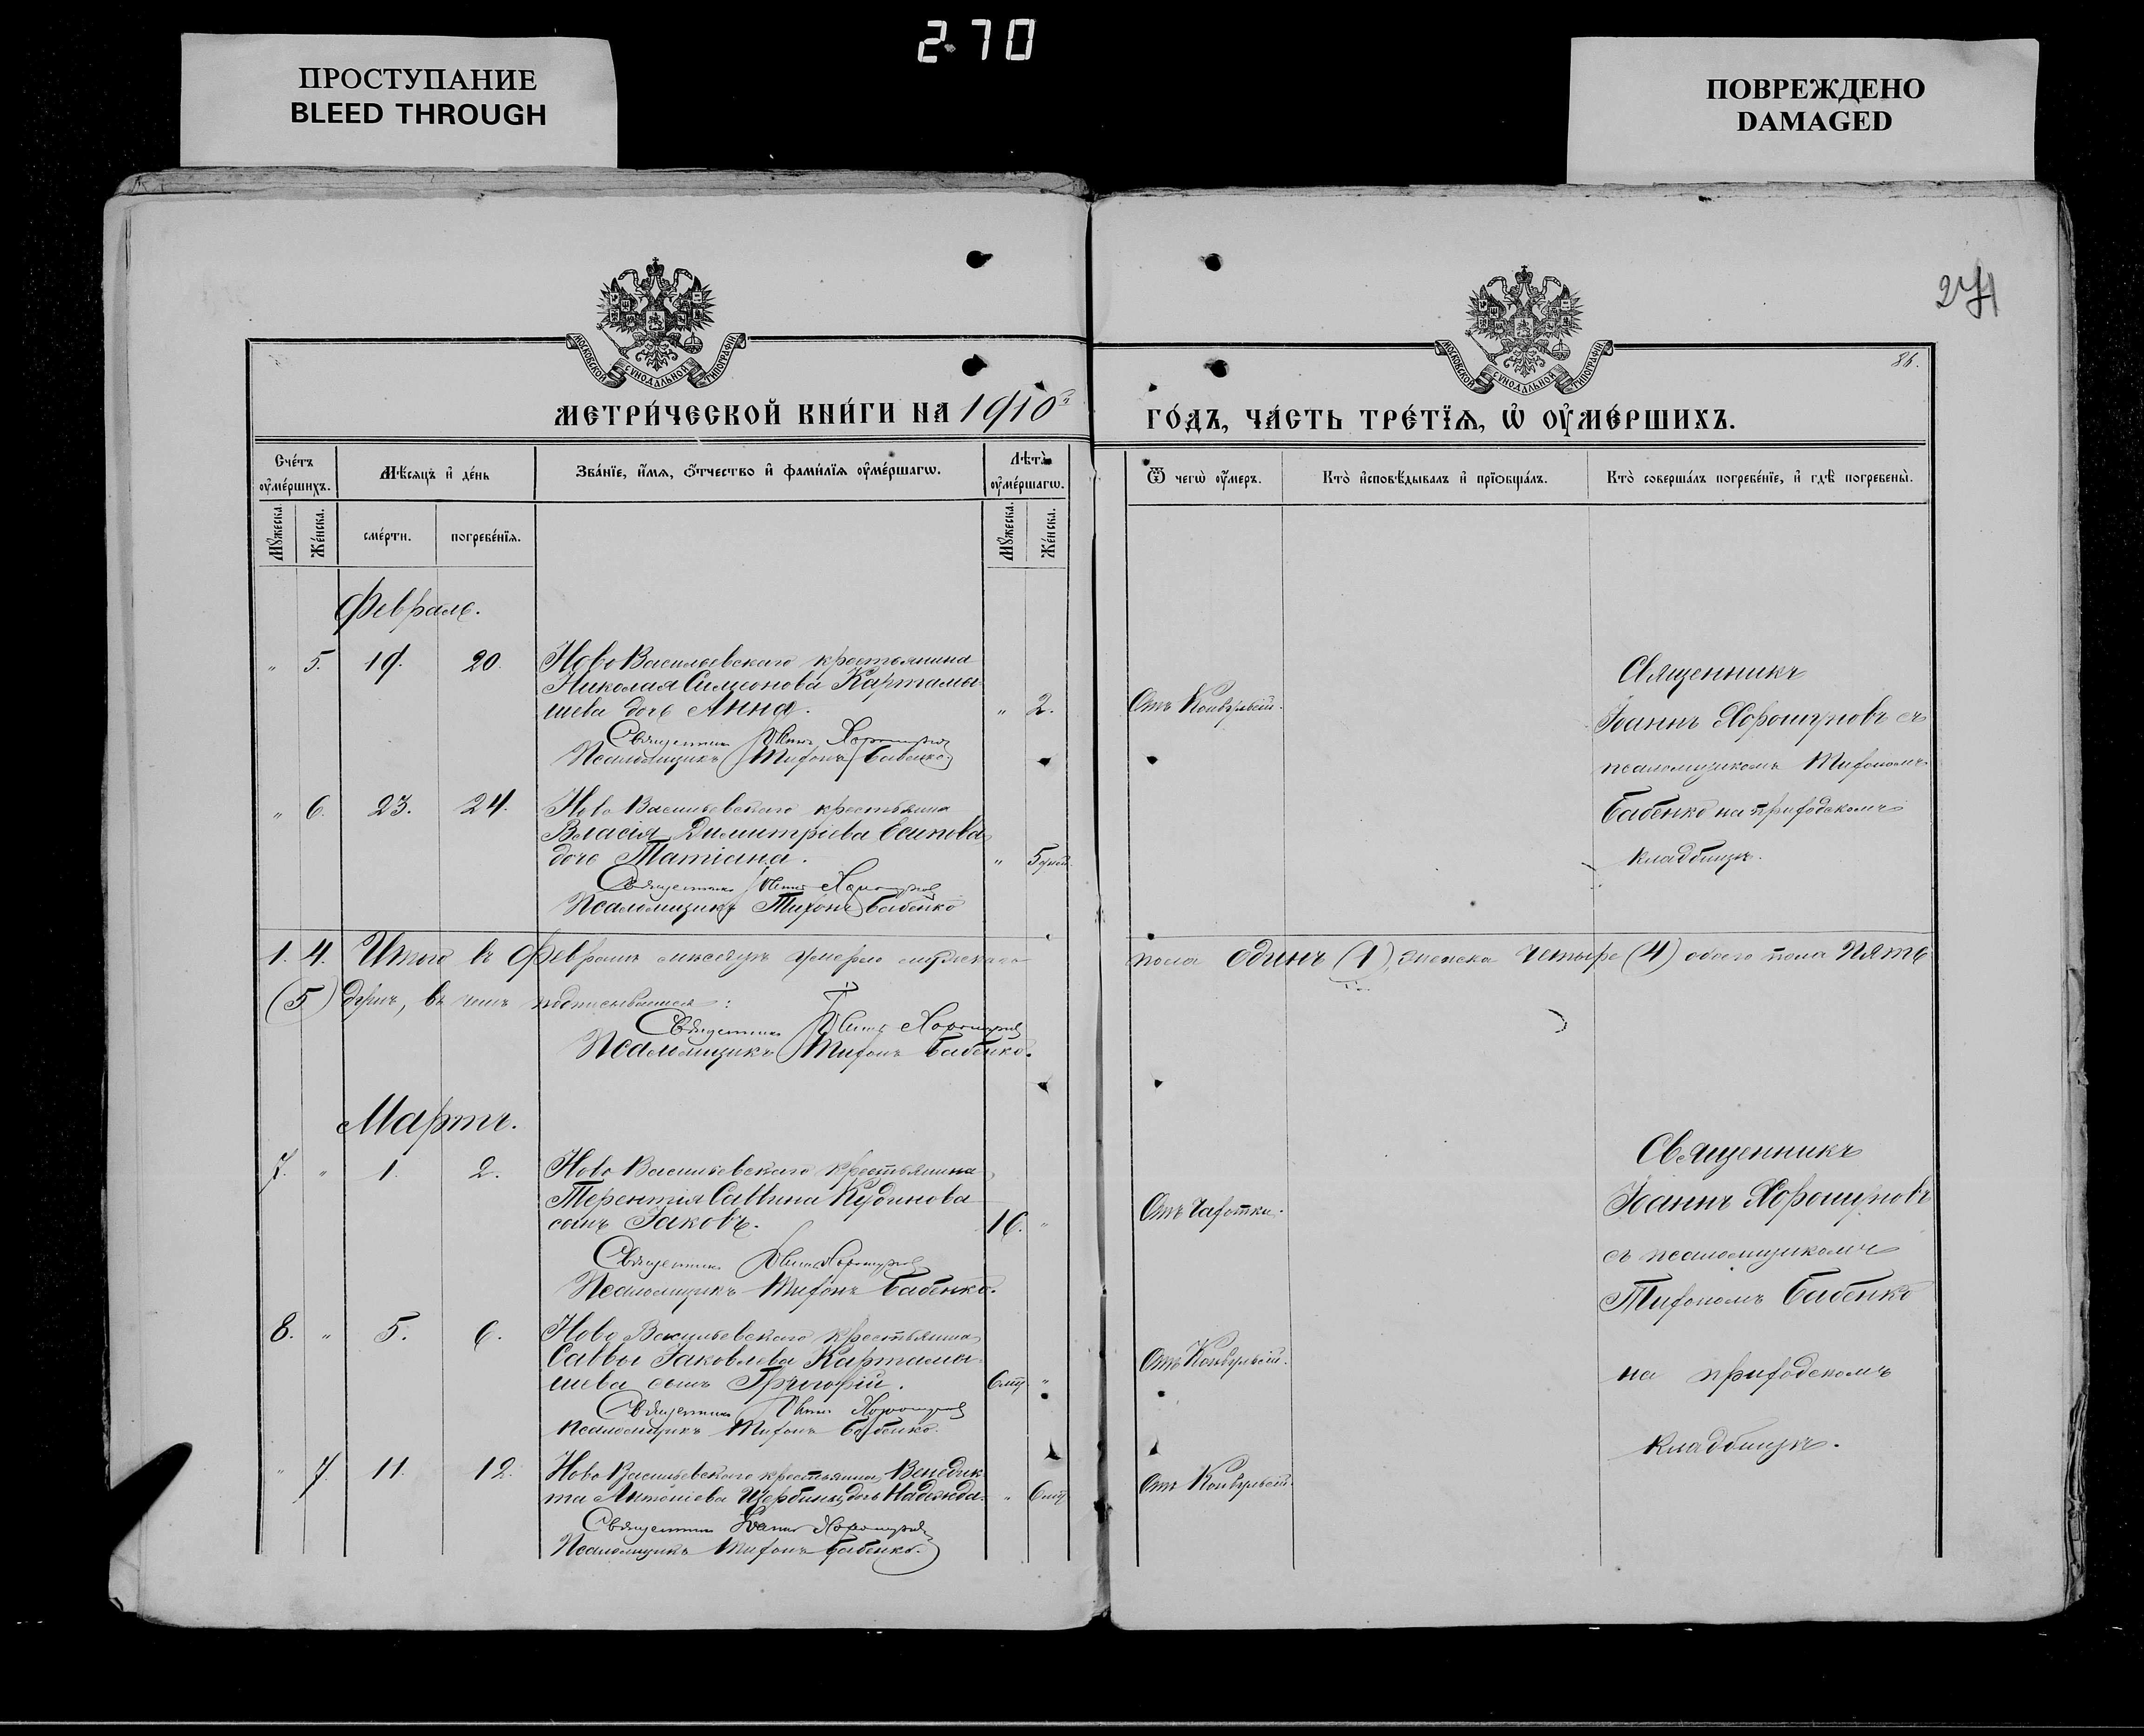 270
ПРОСТУПАНИЕ
BLEED THROUGH
ПОВРЕЖДЕНО
DAMAGED
271
86.
МОСКОВСКОЙ СѴНОДАЛЬНОЙ ТИПОГРАФІИ
МОСКОВСКОЙ СѴНОДАЛЬНОЙ ТИПОГРАФІИ
МЕТРИ́ЧЕСКОЙ КНИ́ГИ НА 1910й
ГО́ДЪ, ЧА́СТЬ ТРЕ́ТЇѦ, Ѡ҆ ОУ҆МЕ́РШИХЪ.
Сче́тъ оу҆ме́ршихъ.
Мѣ́сяцъ и҆ де́нь
Зва́нїе, и҆́мя, ѻ҆́тчество и҆ фами́лїя оу҆ме́ршагѡ.
Лѣ́та оу҆ме́ршагѡ.
Ѿ чегѡ̀ оу҆́меръ.
Кто̀ и҆сповѣ́дывалъ и҆ прїѡбща́лъ.
Кто̀ соверша́лъ погребе́нїе, и҆ гдѣ̀ погребены̀.
Мꙋ́жеска.
Же́нска.
сме́рти.
погребе́нїя.
Мꙋ́жеска.
Же́нска.
Февраль.
" 5. 19. 20. Ново Васильевскаго крестьянина
Николая Симеонова Картамы-
шева дочь Анна. " 2. Отъ Конвульсій.
Священникъ Іоаннъ Хорошуновъ
Псаломщикъ Тихонъ Бабенко.
Священникъ
Іоаннъ Хорошуновъ съ
псаломщикомъ Тихономъ
Бабенко на приходскомъ
кладбищѣ.
" 6. 23. 24. Ново Васильевскаго крестьянина
Власія Димитріева Есипова
дочь Татіана. " 5 дней.
Священникъ Іоаннъ Хорошуновъ
Псаломщикъ Тихонъ Бабенко
1. 4. Итого въ Февралѣ мѣсяцѣ умерло мужескаго пола одинъ (1), женска четыре (4) обоего пола пять
(5) душъ, въ чемъ подписываемся:
Священникъ Іоаннъ Хорошуновъ
Псаломщикъ Тихонъ Бабенко.
Мартъ.
7. " 1. 2. Ново Васильевскаго крестьянина
Терентія Саввина Кудинова
сынъ Іаковъ. 16. " Отъ Чахотки.
Священникъ Іоаннъ Хорошуновъ
Псаломщикъ Тихонъ Бабенко.
Священникъ
Іоаннъ Хорошуновъ
съ псаломщикомъ
Тихономъ Бабенко
на приходскомъ
кладбищѣ.
8. " 5. 6. Ново Васильевскаго крестьянина
Саввы Іаковлева Картамы-
шева сынъ Григорій. 6 мѣс. " Отъ Конвульсій.
Священникъ Іоаннъ Хорошуновъ
Псаломщикъ Тихонъ Бабенко.
" 7. 11. 12. Ново Васильевскаго крестьянина Венедик-
та Антоніева Щербины дочь Надежда. " 6 мѣс. Отъ Конвульсій.
Священникъ Іоаннъ Хорошуновъ
Псаломщикъ Тихонъ Бабенко.